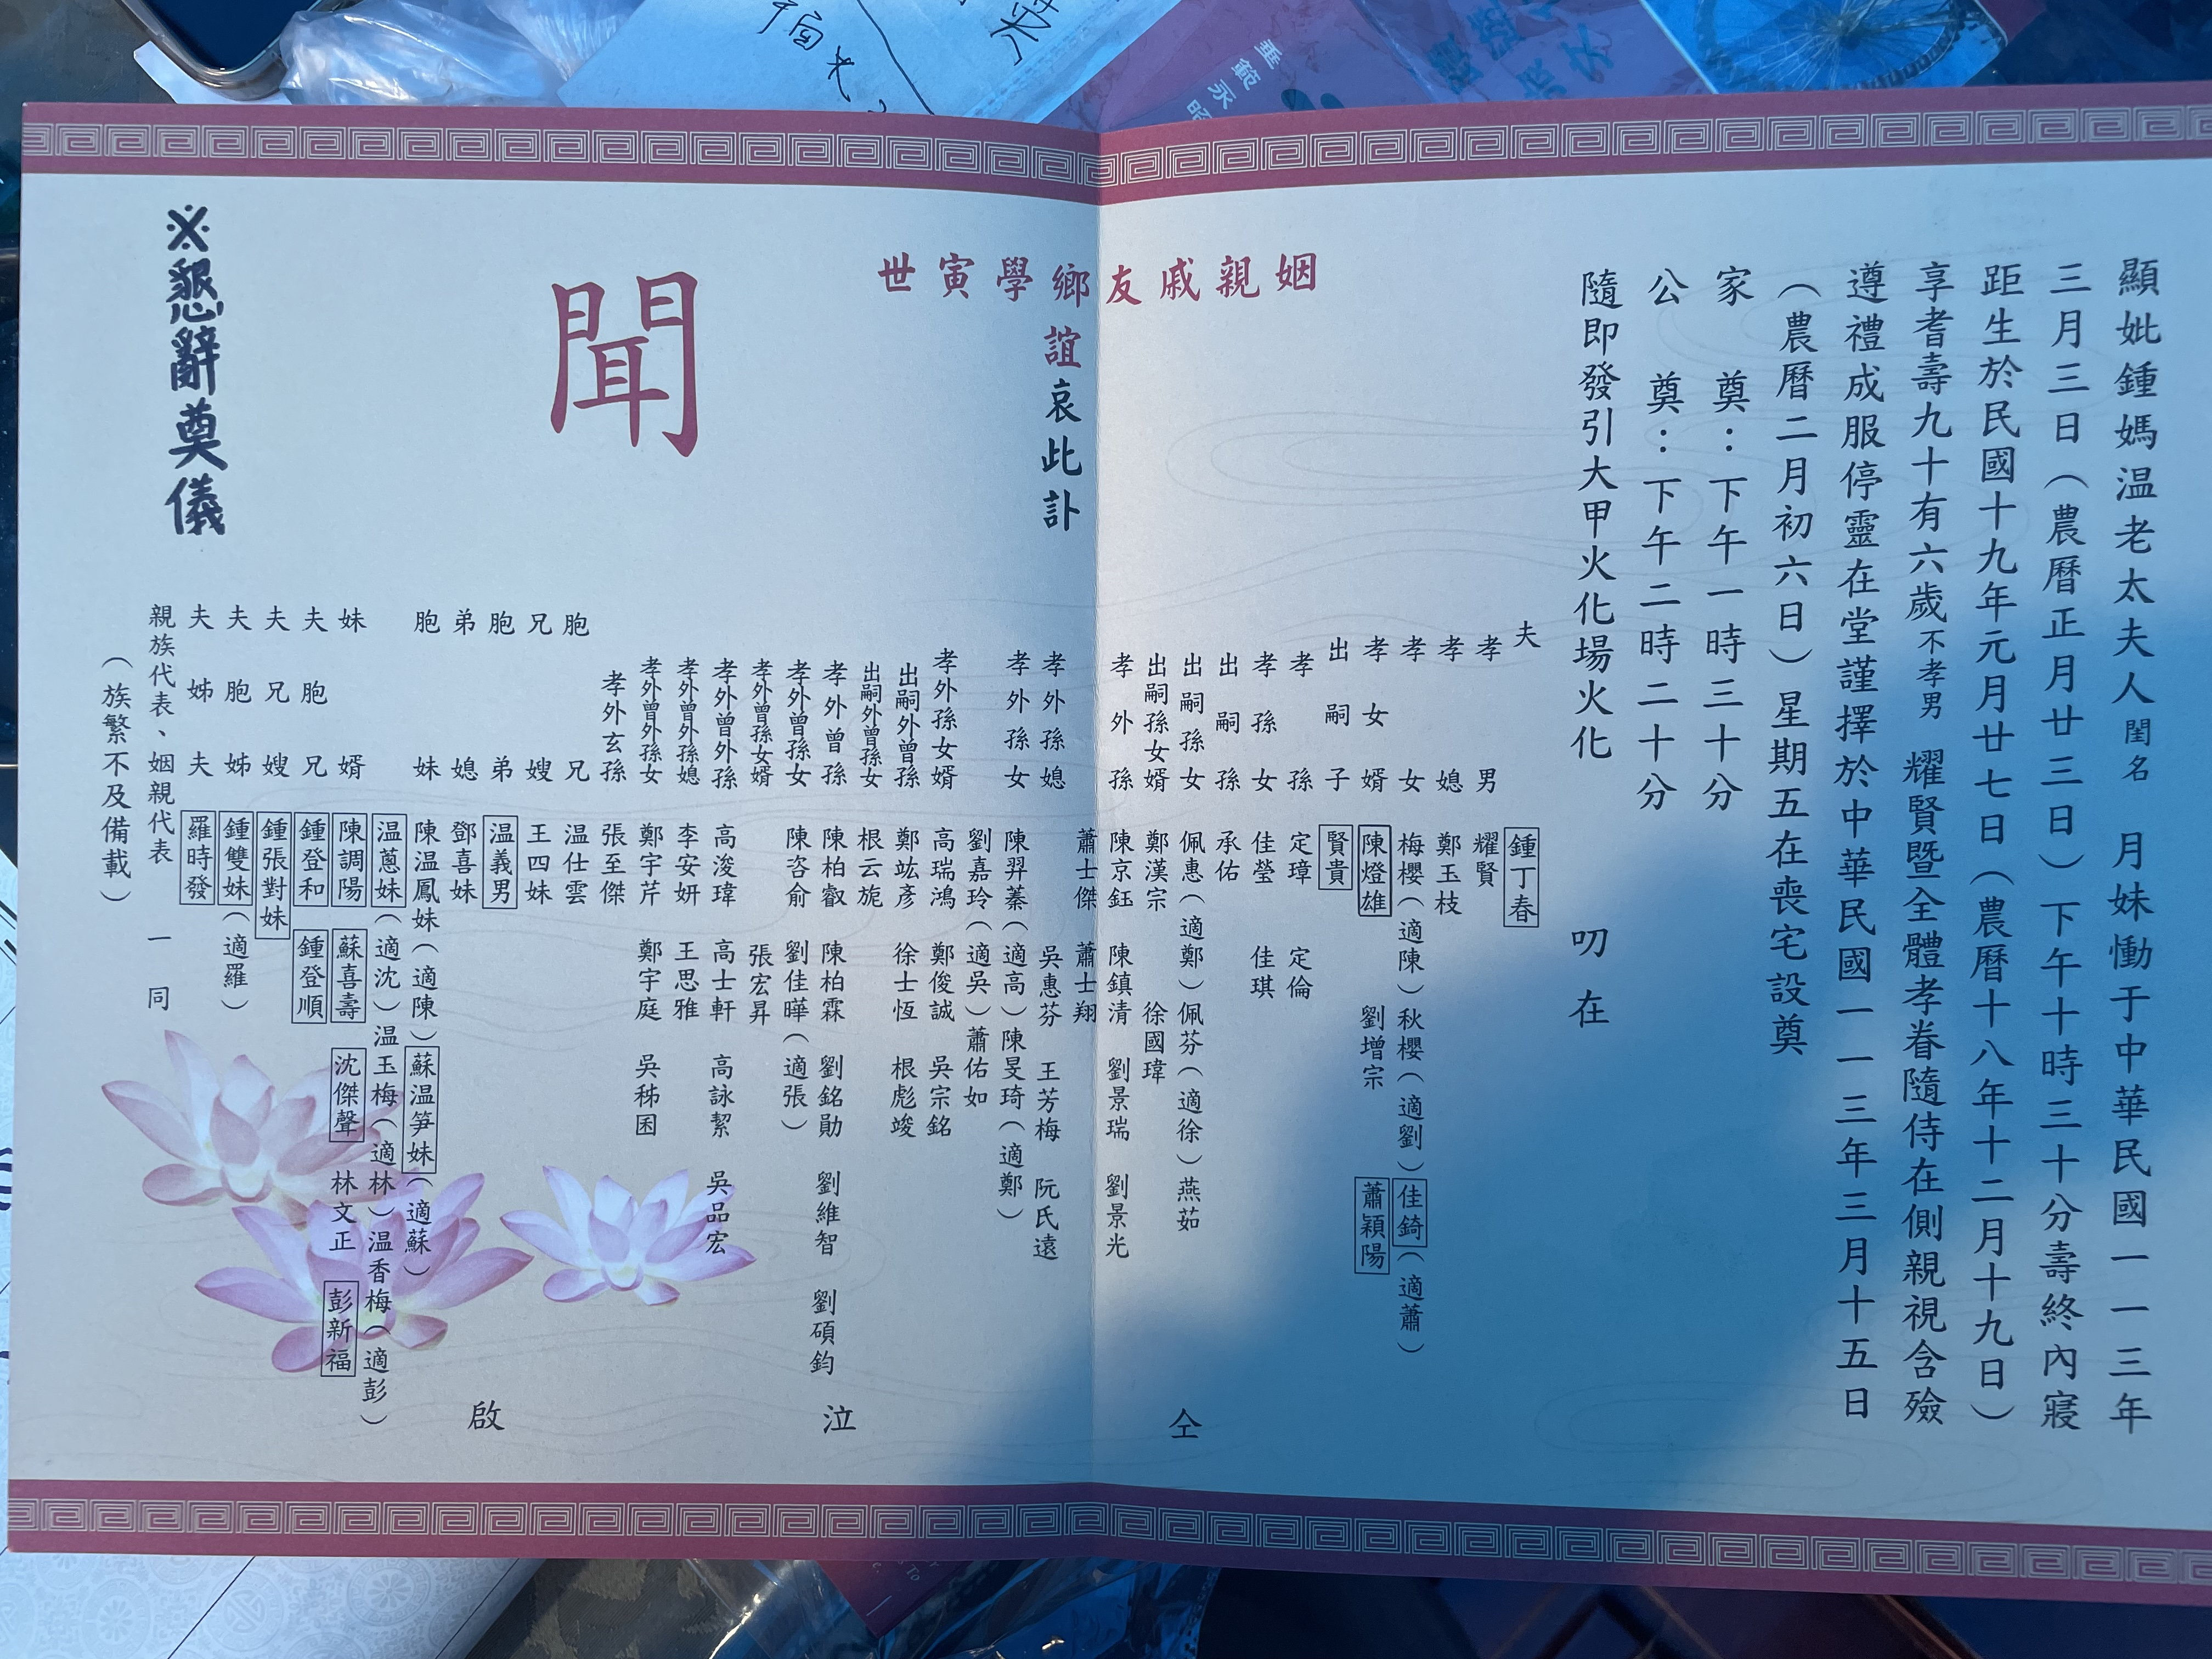 顯妣鍾媽温老太夫人閨名 月妹慟于中華民國一一三年
三月三日(農曆正月廿三日)下午十時三十分壽終內寢
距生於民國十九年元月廿七日(農曆十八年十二月十九日)
享耆壽九十有六歲不孝男 耀賢暨全體孝眷隨侍在側親視含殮
遵禮成服停靈在堂謹擇於中華民國一一三年三月十五日
(農曆二月初六日)星期五在喪宅設奠
家 奠:下午一時三十分
公 奠:下午二時二十分
隨即發引大甲火化場火化
叨在
姻親戚友鄉學寅世
誼哀此訃
聞
夫 鍾丁春
孝男 耀賢
孝媳 鄭玉枝
孝女 梅櫻(適陳)秋櫻(適劉)佳錡(適蕭)
孝女婿 陳燈雄 劉增宗 蕭穎陽
出嗣子 賢貴
孝孫 定璋 定倫
孝孫女 佳瑩 佳琪
出嗣孫 承佑
出嗣孫女 佩惠(適鄭)佩芬(適徐)燕茹
出嗣孫女婿 鄭漢宗 徐國瑋
孝外孫 陳京鈺 陳鎮清 劉景瑞 劉景光
蕭士傑 蕭士翔
孝外孫媳 吳惠芬 王芳梅 阮氏遠
孝外孫女 陳羿蓁(適高)陳旻琦(適鄭)
劉嘉玲(適吳)蕭佑如
孝外孫女婿 高瑞鴻 鄭俊誠 吳宗銘
出嗣外曾孫 鄭竑彥 徐士恆 根彪竣
出嗣外曾孫女 根云旎
孝外曾孫 陳柏叡 陳柏霖 劉銘勛 劉維智 劉碩鈞
孝外曾孫女 陳咨俞 劉佳曄(適張)
孝外曾孫女婿 張宏昇
孝外曾外孫 高浚瑋 高士軒 高詠絜 吳品宏
孝外曾外孫媳 李安妍 王思雅
孝外曾外孫女 鄭宇芹 鄭宇庭 吳秭囷
孝外玄孫 張至傑
胞兄 温仕雲
兄嫂 王四妹
胞弟 温義男
弟媳 鄧喜妹
胞妹 陳温鳳妹(適陳)蘇温笋妹(適蘇)
温蔥妹(適沈)温玉梅(適林)温香梅(適彭)
妹婿 陳調陽 蘇喜壽 沈傑聲 林文正 彭新福
夫胞兄 鍾登和 鍾登順
夫兄嫂 鍾張對妹
夫胞姊 鍾雙妹(適羅)
夫姊夫 羅時發
親族代表、姻親代表 一同
(族繁不及備載)
仝 泣 啟
※懇辭奠儀
垂範永昭